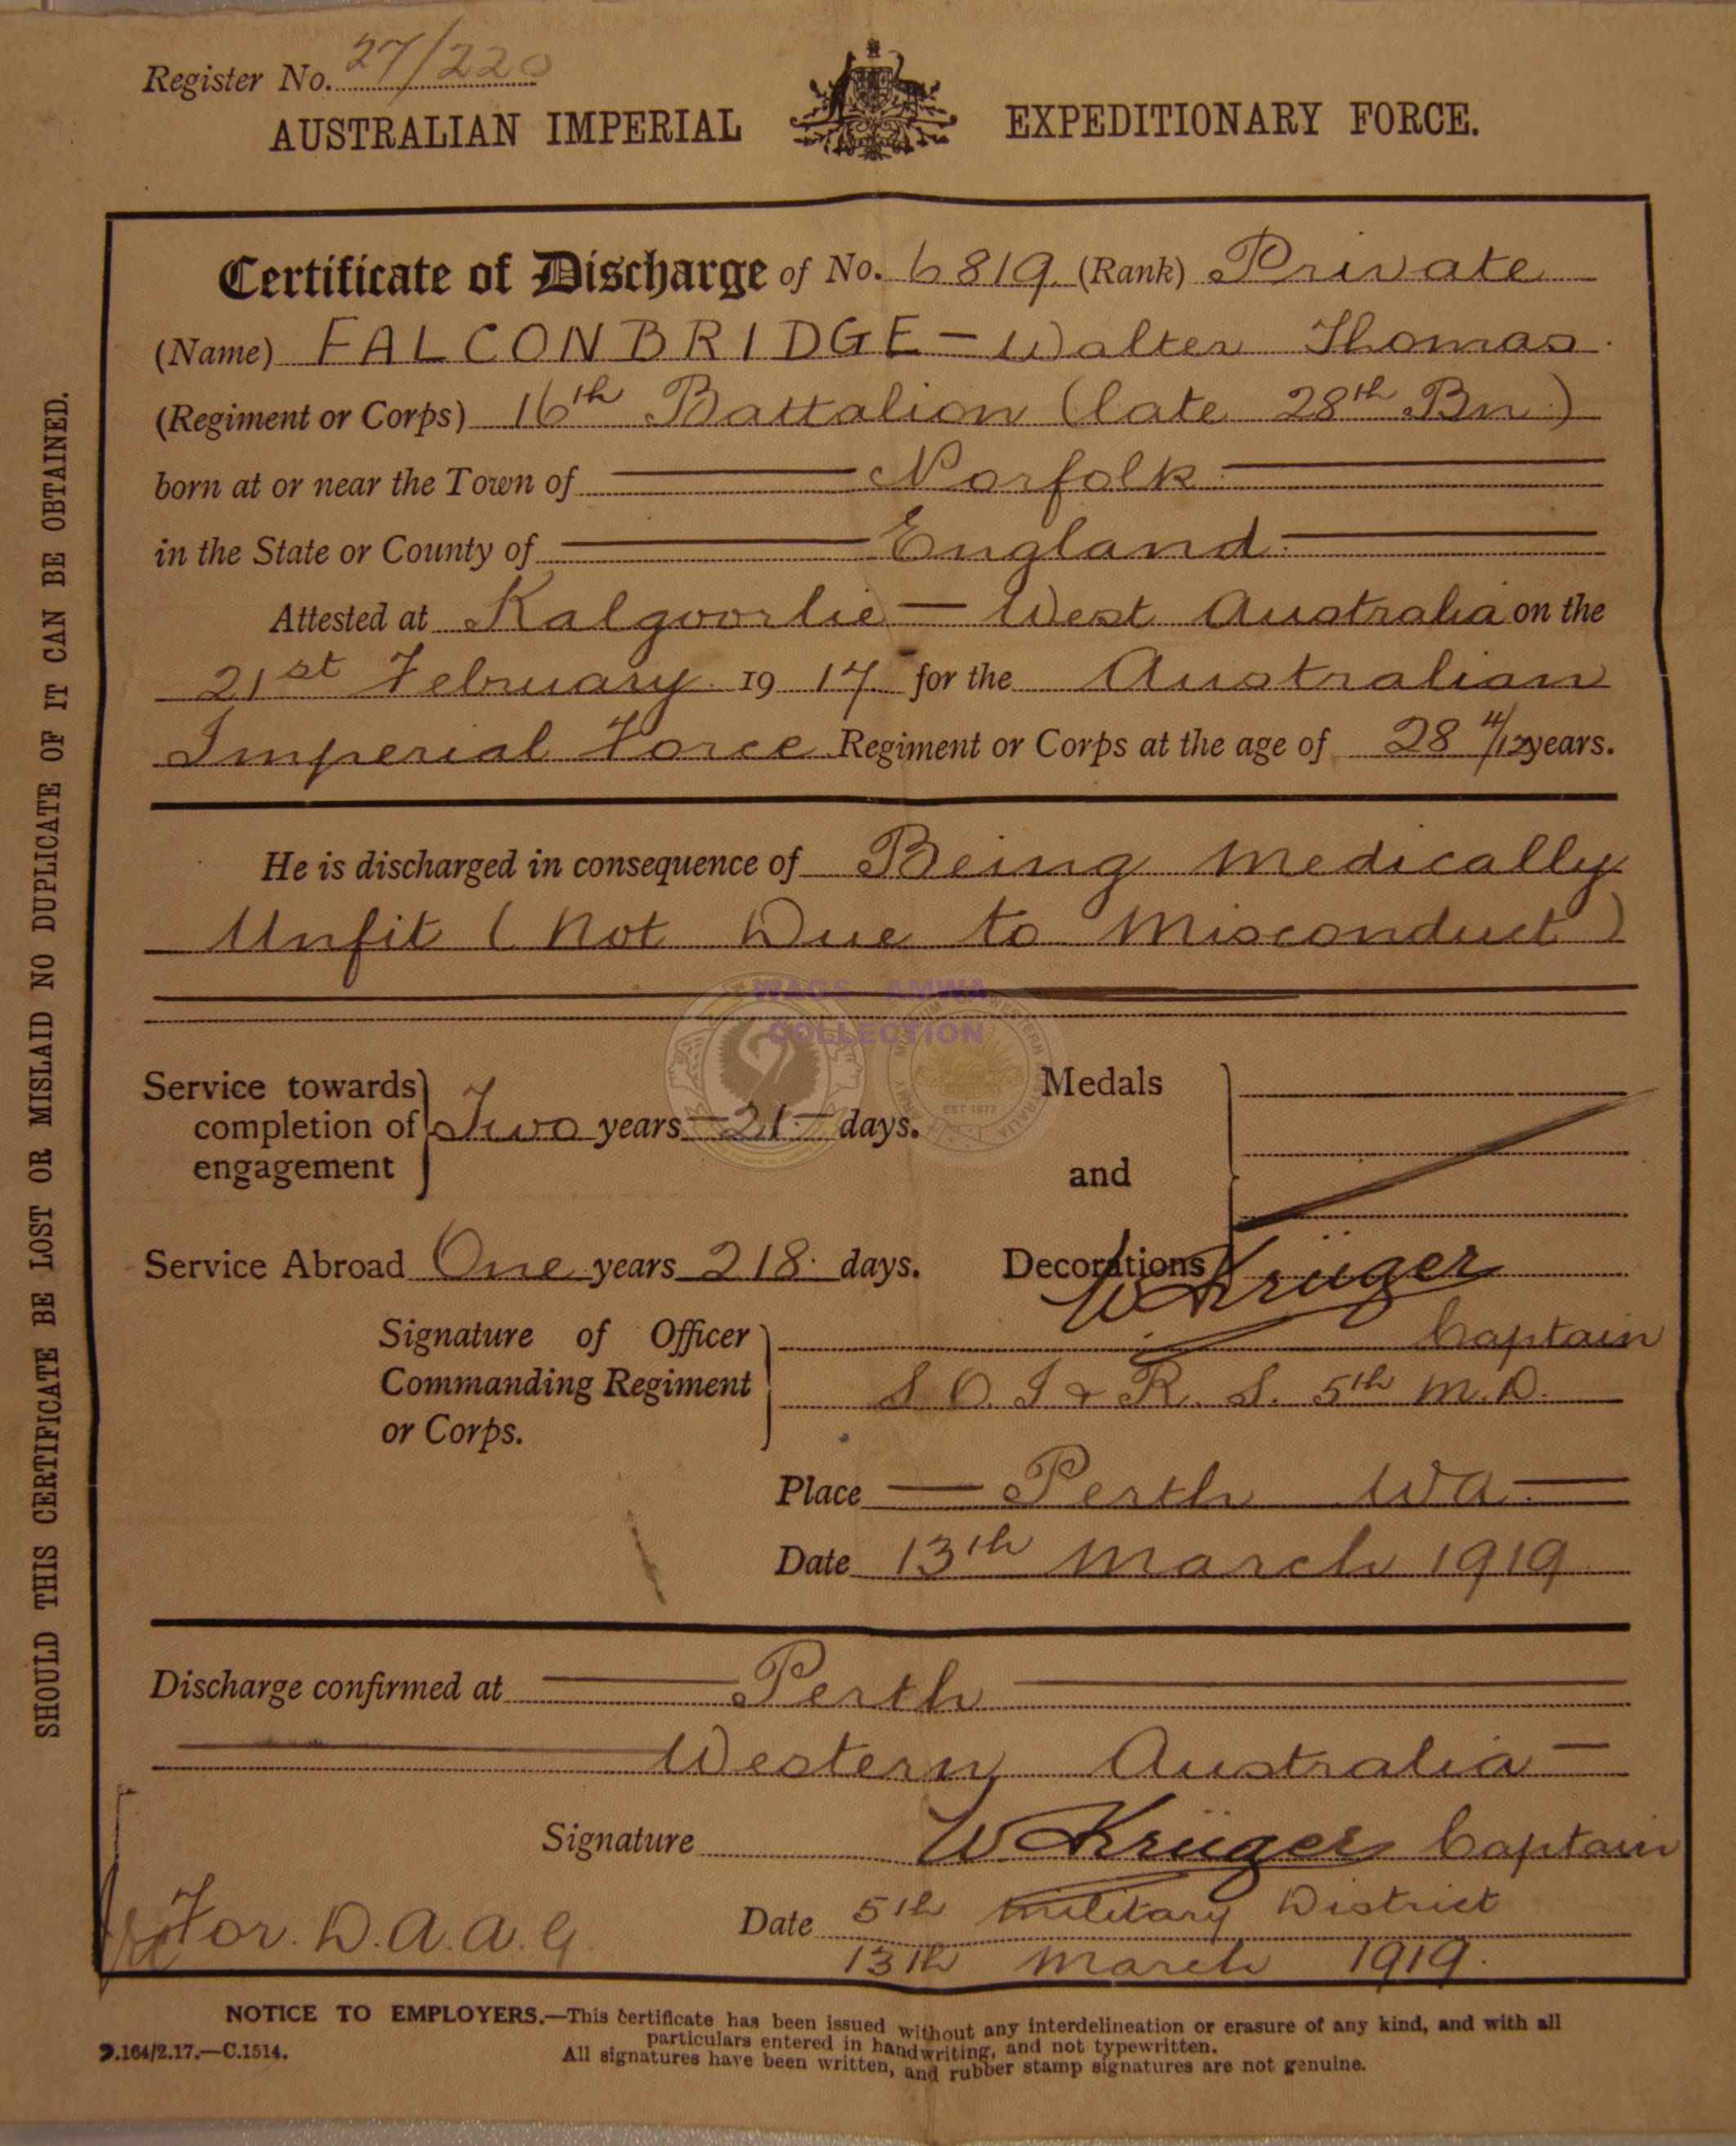 Register No. 27/220
AUSTRALIAN IMPERIAL EXPEDITIONARY FORCE.
Certificate of Discharge of No. 6819 (Rank) Private
(Name) FALCONBRIDGE - Walter Thomas
(Regiment or Corps) 16th Battalion (late 28th Bn)
born at or near the Town of Norfolk
in the State or County of England
Attested at Kalgoorlie - West Australia on the
21st February 19 17 for the Australian
Imperial Force Regiment or Corps at the age of 28 4/12 years.
He is discharged in consequence of Being Medically
Unfit (Not Due to Misconduct)
WAGS AMWA
COLLECTION
EST 1872
Service towards
completion of Two years - 21 - days.
engagement
Medals
and
Decorations
Service Abroad One years 218 days.
W Krüger
Signature of Officer Captain
Commanding Regiment S.O. I & R. S. 5th M.D.
or Corps.
Place - Perth WA -
Date 13th March 1919
Discharge confirmed at Perth
Western Australia -
Signature W Krüger Captain
For D.A.A.G.
Date 5th Military District
13th March 1919.
NOTICE TO EMPLOYERS.—This certificate has been issued without any interdelineation or erasure of any kind, and with all
particulars entered in handwriting, and not typewritten.
D.164/2.17.—C.1514.
All signatures have been written, and rubber stamp signatures are not genuine.
SHOULD THIS CERTIFICATE BE LOST OR MISLAID NO DUPLICATE OF IT CAN BE OBTAINED.